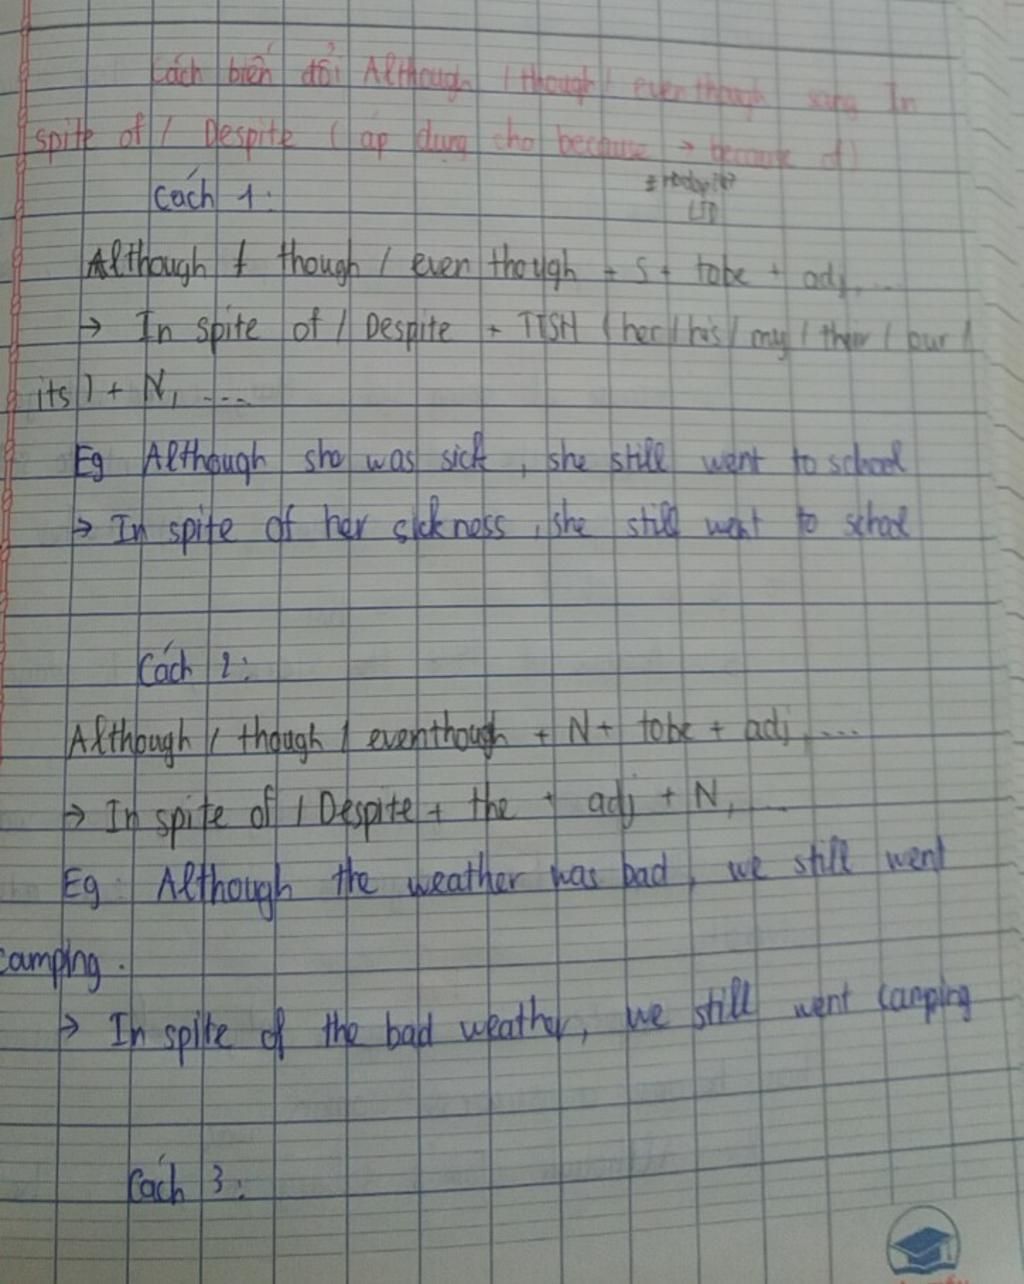 Cách biến đổi Although / though / even though sang In
spite of / Despite ( áp dụng cho because → because of)
Cách 1:
Although / though / even though + S + tobe + adj, ...
→ In spite of / Despite + TTSH (her / his / my / their / our /
its) + N, ....
Eg Although she was sick, she still went to school
→ In spite of her sickness, she still went to school
Cách 2:
Although / though / eventhough + N + tobe + adj, ...
→ In spite of / Despite + the + adj + N, ...
Eg: Although the weather was bad, we still went
camping.
→ In spite of the bad weather, we still went camping
Cách 3: